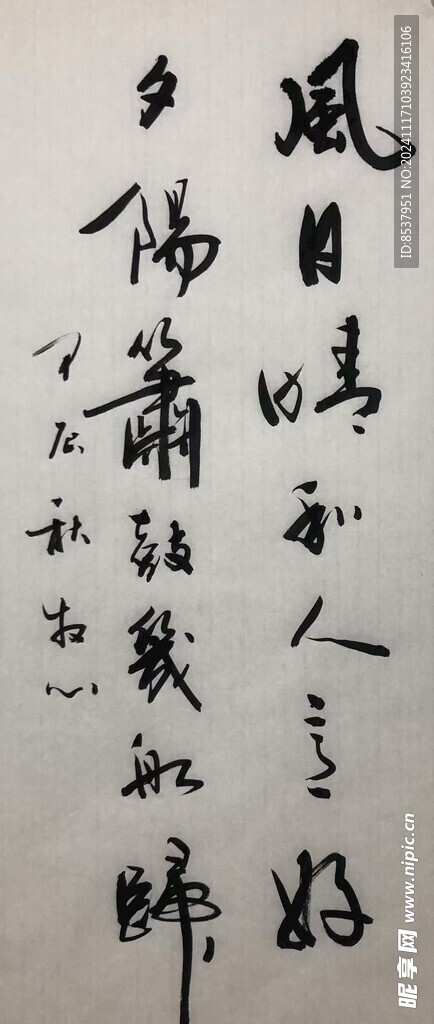 風日晴和人意好
夕陽簫鼓幾船歸
甲辰秋牧心
ID:8537951 NO:20241117103923416106
昵享网 www.nipic.cn